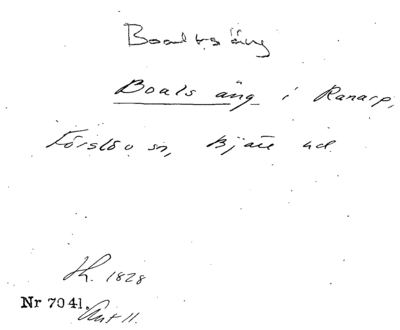 Boaltsäng
Boals äng i Ranarp,
Förslöv sn, Bjäre hd
Sk. 1828
Nr 7041.
Ant 11.